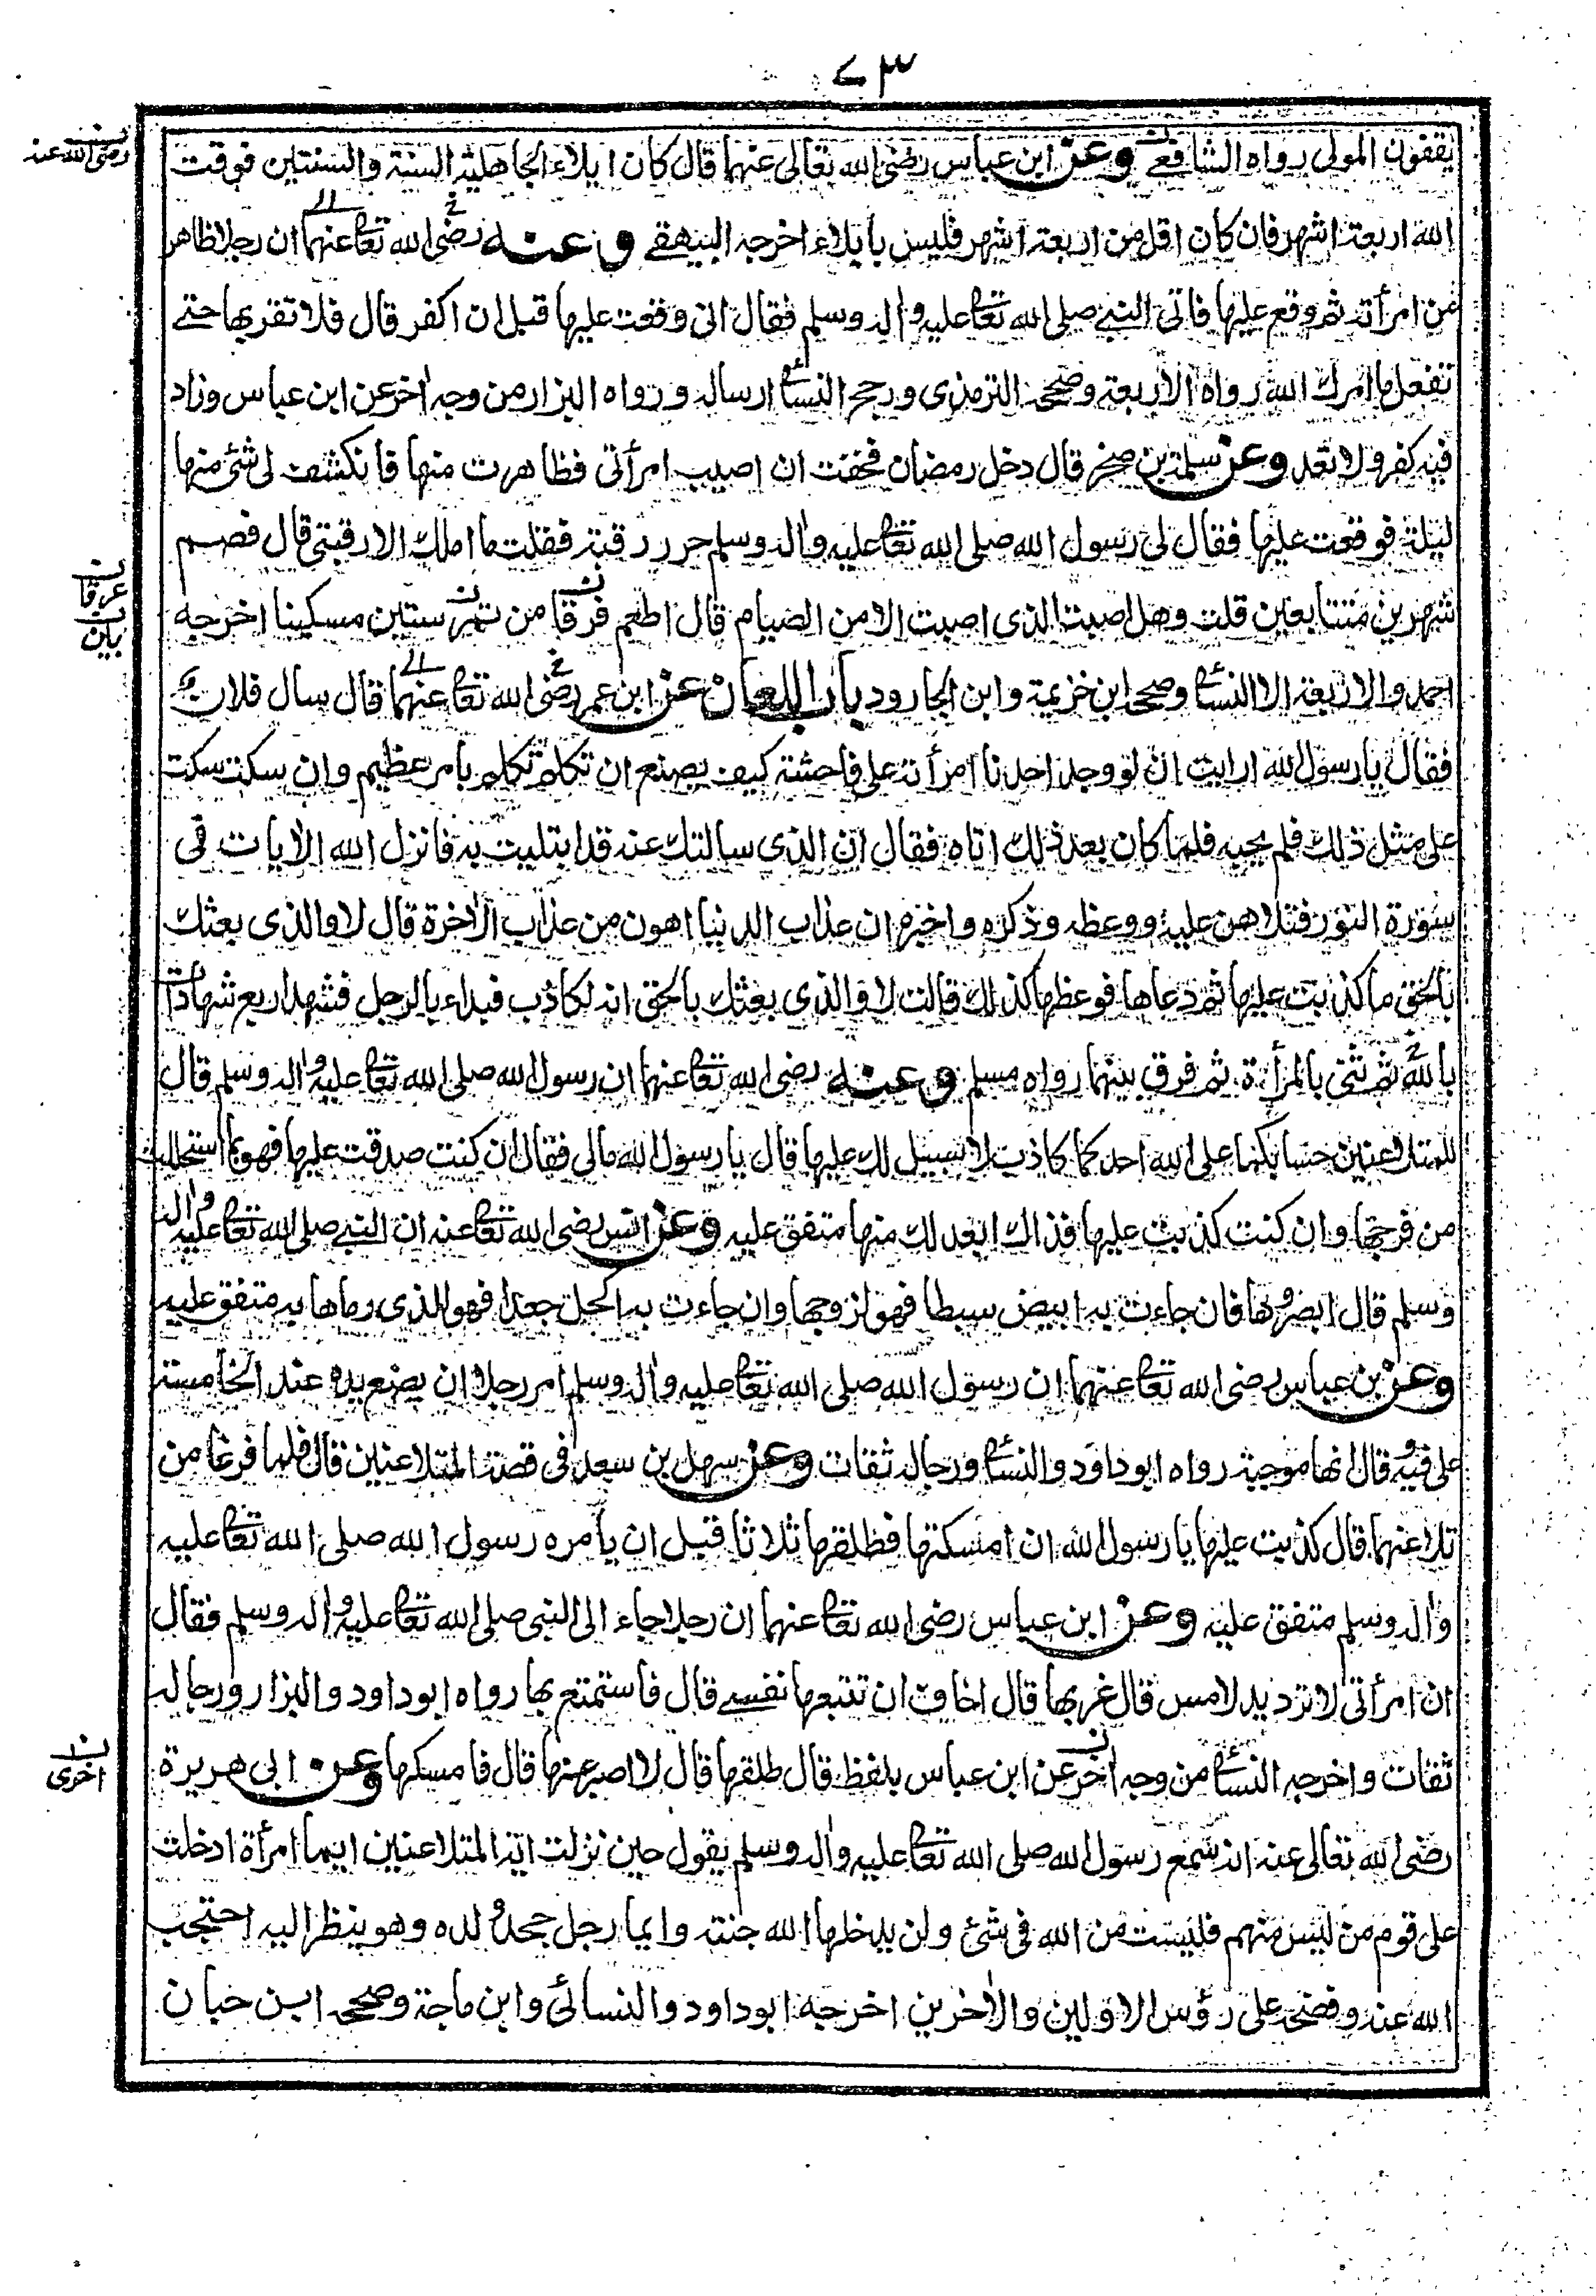 ٧٣
يقفون المولى رواه الشافعے وعن ابن عباس رضى الله تعالى عنهما قال كان ايلاء الجاهلية السنة والسنتين فوقت
رضى الله عنه
الله اربعة اشهر فان كان اقل من اربعة اشهر فليس بايلاء اخرجه البيهقے وعنه رضى الله تعا عنهما ان رجلا ظاهر
من امرأته ثم وقع عليها فاتى النبے صلى الله تعا عليه واله وسلم فقال انى وقعت عليها قبل ان اكفر قال فلا تقربها حتے
تفعل ما امرك الله رواه الاربعة وصححه الترمذى ورجح النسائ ارساله ورواه البزار من وجه اخر عن ابن عباس وزاد
فيه كفر ولا تعد وعن سلمة بن صخر قال دخل رمضان فخفت ان اصيب امرأتى فظاهرت منها فانكشف لى شئ منها
ليلة فوقعت عليها فقال لى رسول الله صلى الله تعا عليه واله وسلم حرر رقبة فقلت ما املك الا رقبتى قال فصم
شهرين متتابعين قلت وهل اصبت الذى اصبت الا من الصيام قال اطعم فرقا من تمر ستين مسكينا اخرجه
ن
عرقا
ن
بين
احمد والاربعة الا النسائ وصححه ابن خزيمة وابن الجارود باب اللعان عن ابن عمر رضى الله تعا عنهما قال سال فلان
فقال يا رسول الله ارايت ان لو وجد احدنا امرأته على فاحشة كيف يصنع ان تكلم تكلم بامر عظيم وان سكت سكت
على مثل ذلك فلم يجبه فلما كان بعد ذلك اتاه فقال ان الذى سالتك عنه قد ابتليت به فانزل الله الايات فى
سورة النور فتلاهن عليه ووعظه وذكره واخبره ان عذاب الدنيا اهون من عذاب الاخرة قال لا والذى بعثك
بالحق ما كذبت عليها ثم دعاها فوعظها كذلك قالت لا والذى بعثك بالحق انه لكاذب فبداء بالرجل فشهد اربع شهادات
بالله ثم ثنى بالمرأة ثم فرق بينهما رواه مسلم وعنه رضى الله تعا عنهما ان رسول الله صلى الله تعا عليه واله وسلم قال
للمتلاعنين حسابكما على الله احدكما كاذب لا سبيل لك عليها قال يا رسول الله مالى فقال ان كنت صدقت عليها فهو بما استحللت
من فرجها وان كنت كذبت عليها فذاك ابعد لك منها متفق عليه وعن انس رضى الله تعا عنه ان النبے صلى الله تعا عليه واله
وسلم قال ابصروها فان جاءت به ابيض سبطا فهو لزوجها وان جاءت به اكحل جعدا فهو الذى رماها به متفق عليه
وعن بن عباس رضى الله تعا عنهما ان رسول الله صلى الله تعا عليه واله وسلم امر رجلا ان يضع يده عند الخامسة
على فيه وقال انها موجبة رواه ابو داود والنسائ ورجاله ثقات وعن سهل بن سعد فى قصة المتلاعنين قال فلما فرغا من
تلاعنهما قال كذبت عليها يا رسول الله ان امسكتها فطلقها ثلاثا قبل ان يامره رسول الله صلى الله تعا عليه
واله وسلم متفق عليه وعن ابن عباس رضى الله تعا عنهما ان رجلا جاء الى النبى صلى الله تعا عليه واله وسلم فقال
ان امرأتى لا ترد يد لامس قال غربها قال اخاف ان تتبعها نفسے قال فاستمتع بها رواه ابو داود والبزار ورجاله
ثقات واخرجه النسائ من وجه اخر عن ابن عباس بلفظ قال طلقها قال لا اصبر عنها قال فامسكها وعن ابى هريرة
ن
اخرى
رضى الله تعالى عنه انه سمع رسول الله صلى الله تعا عليه واله وسلم يقول حين نزلت اية المتلاعنين ايما امرأة ادخلت
على قوم من ليس منهم فليست من الله فى شئ ولن يدخلها الله جنته وايما رجل جحد ولده وهو ينظر اليه احتجب
الله عنه وفضحه على رؤس الاولين والاخرين اخرجه ابو داود والنسائى وابن ماجة وصححه ابن حبان